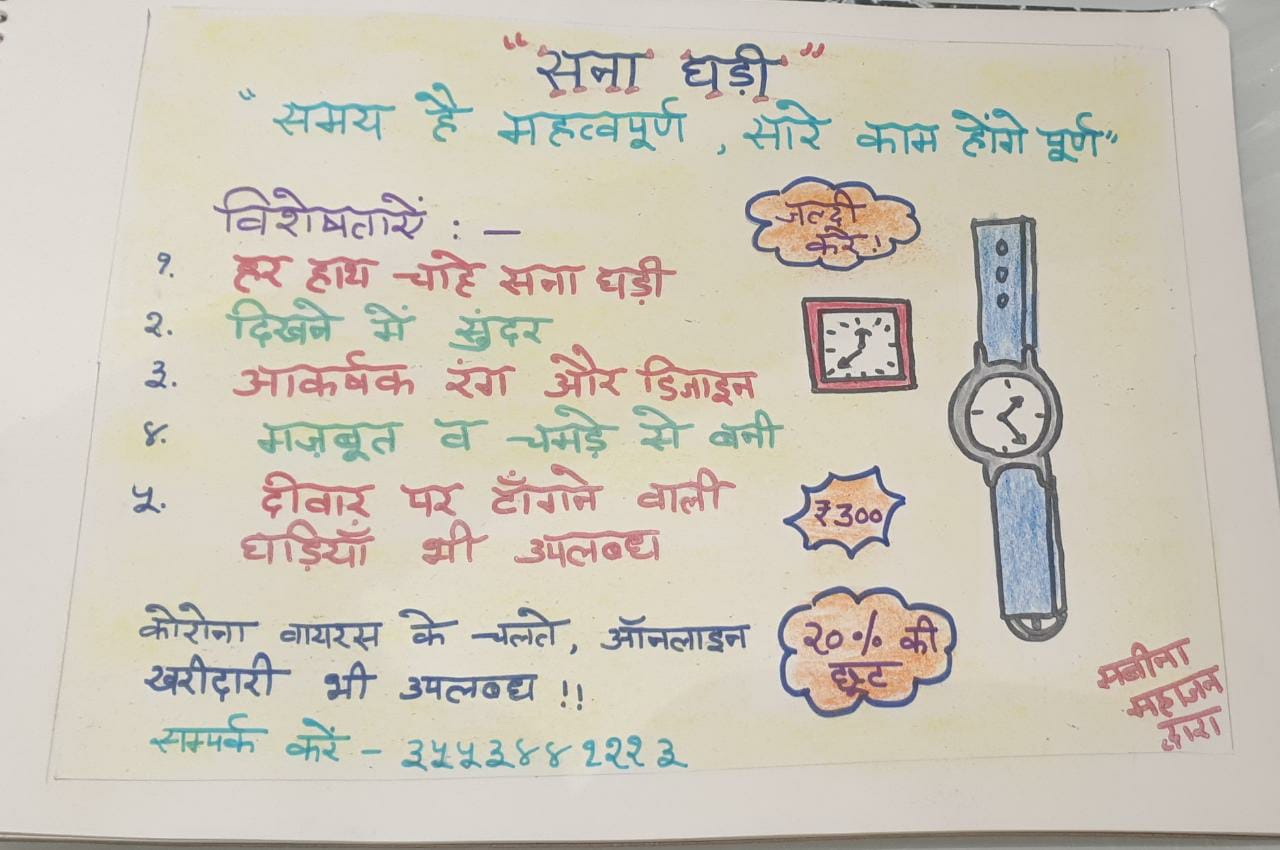 "सना घड़ी"
"समय है महत्वपूर्ण, सारे काम होंगे पूर्ण"
विशेषताऐं : —
१. हर हाथ चाहे सना घड़ी
२. दिखने में सुंदर
३. आकर्षक रंग और डिजाइन
४. मज़बूत व चमड़े से बनी
५. दीवार पर टाँगने वाली
घड़ियाँ भी उपलब्ध
जल्दी
करें!
₹300
२०% की
छूट
कोरोना वायरस के चलते, ऑनलाइन
खरीदारी भी उपलब्ध !!
सम्पर्क करें - ३५५३४४१२२३
महाजन
द्वारा